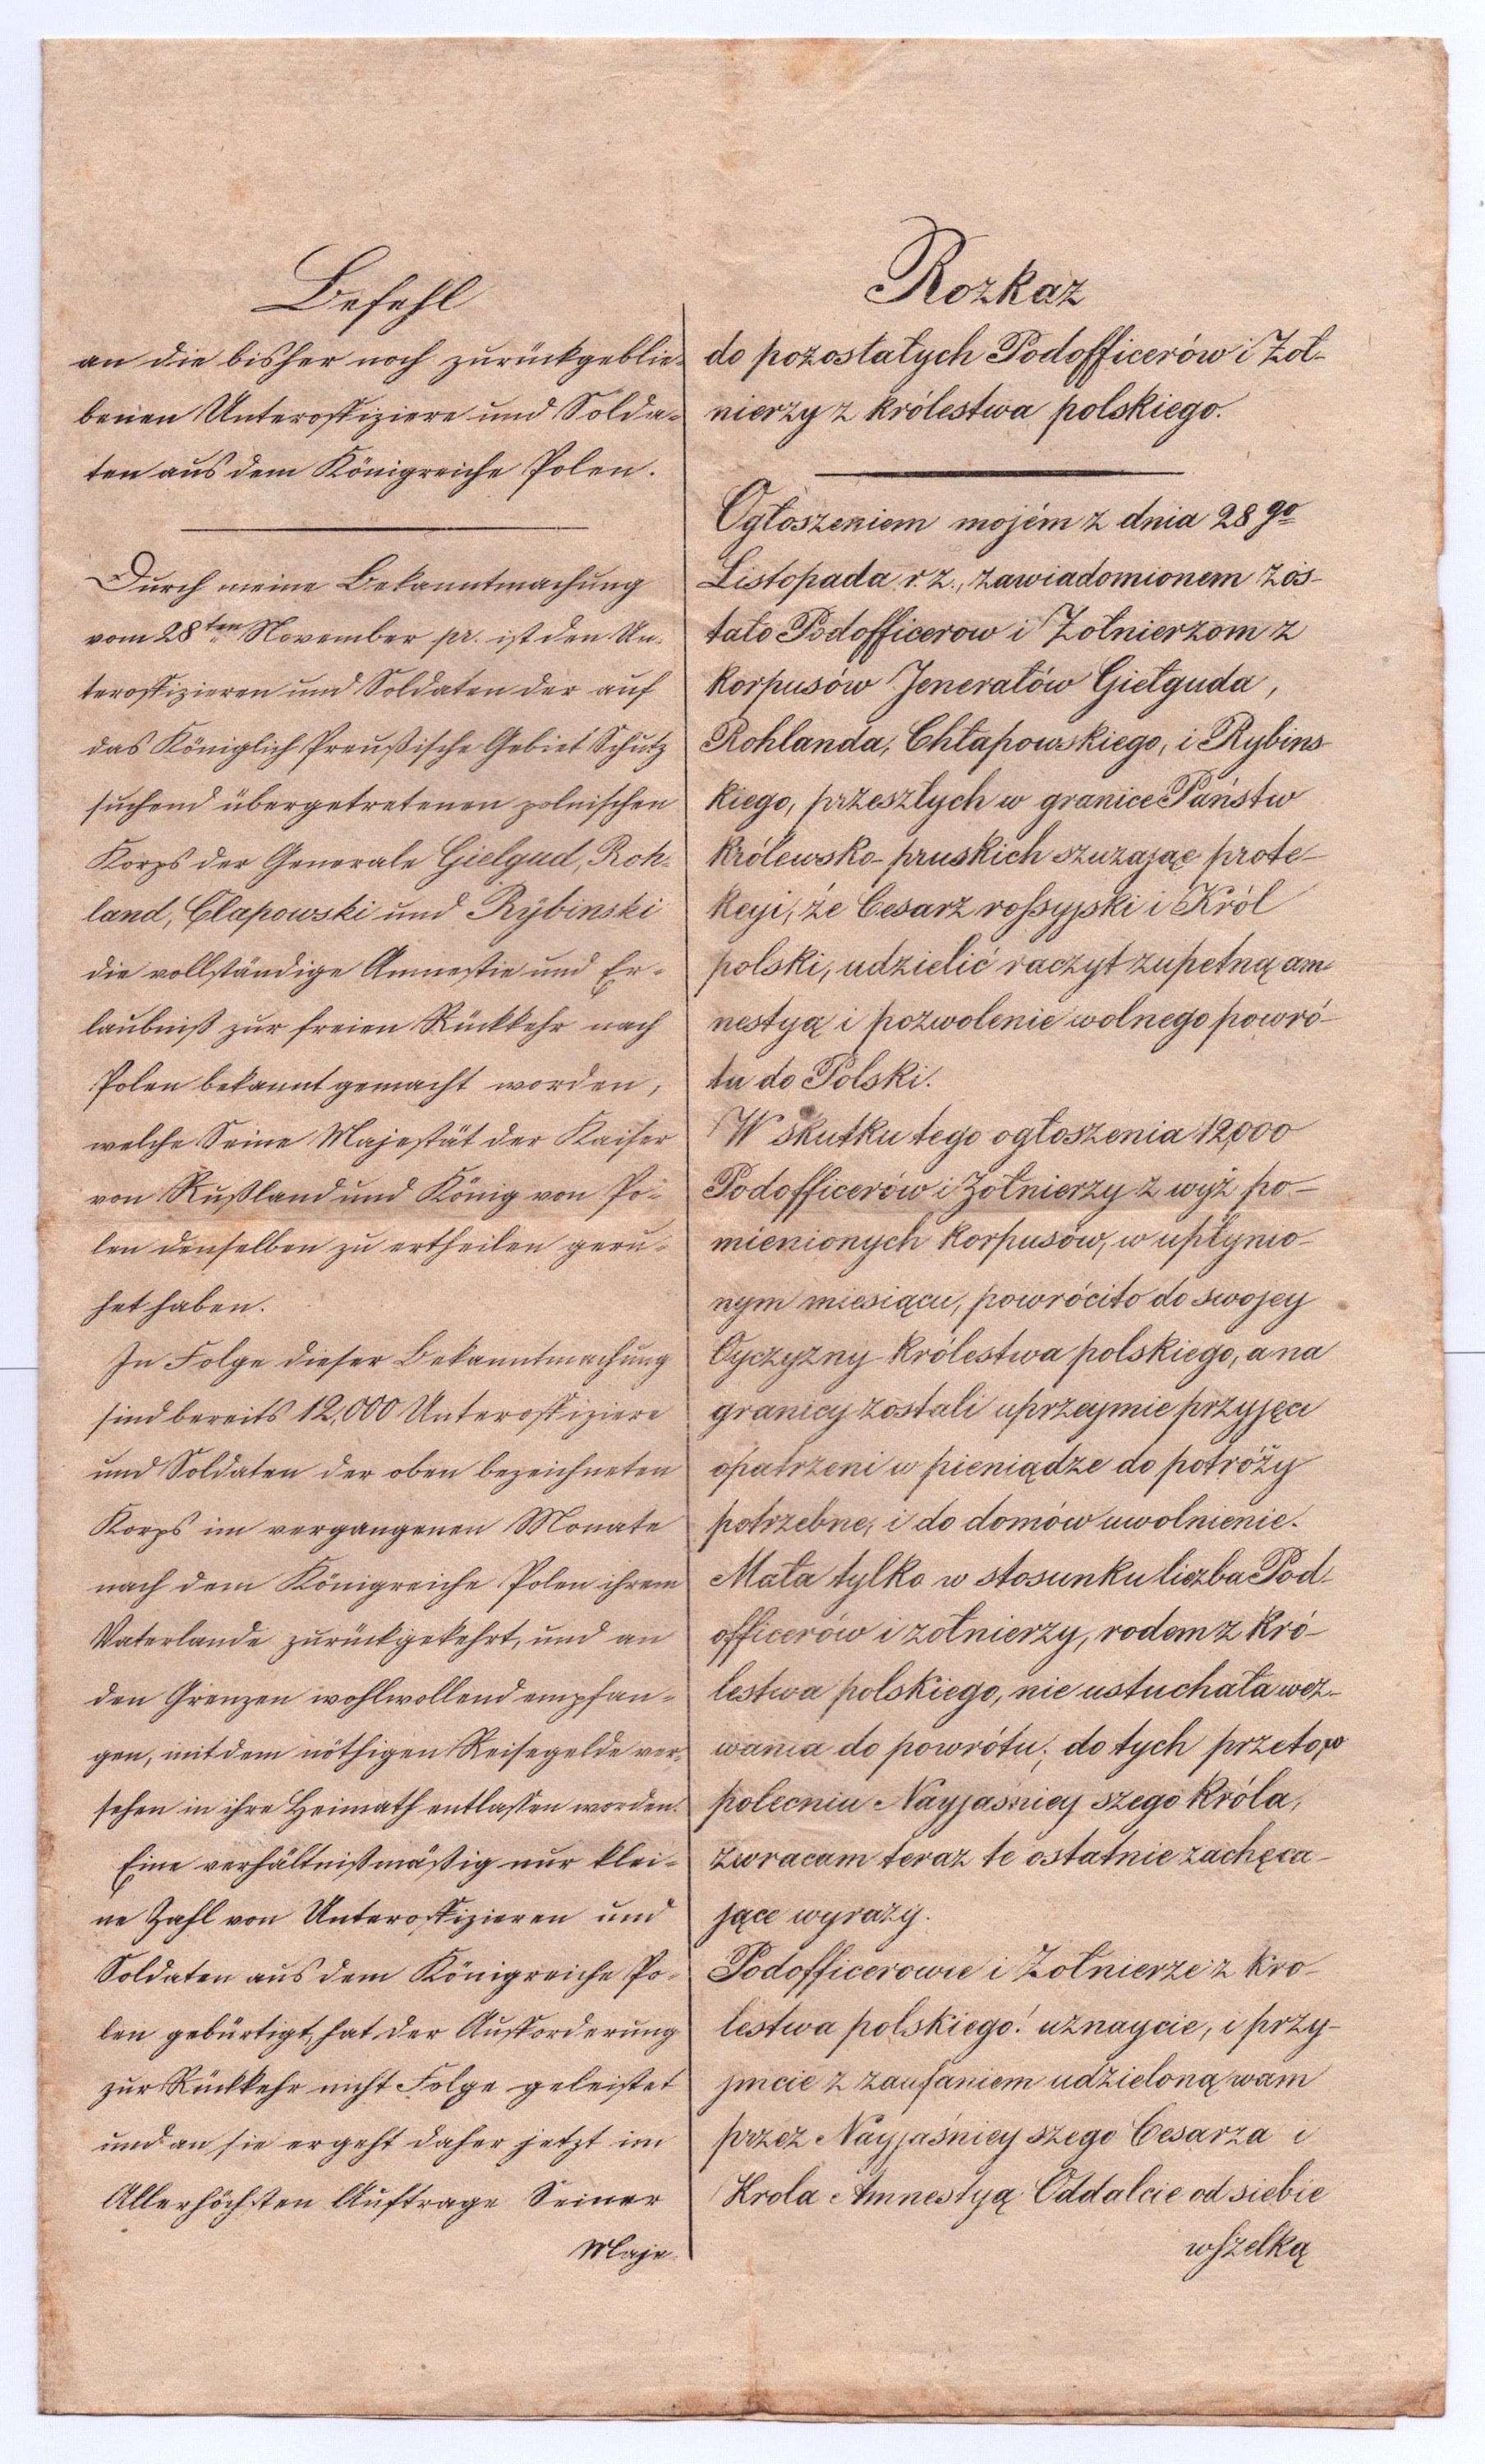 Befehl
an die bisher noch zurückgeblie-
benen Unteroffiziere und Solda-
ten aus dem Königreiche Polen.
Durch meine Bekanntmachung
vom 28ten November pr. ist den Un-
teroffizieren und Soldaten der auf
das Königlich Preußische Gebiet Schutz
suchend übergetretenen polnischen
Korps der Generale Gielgud, Roh-
land, Clapowski und Rÿbinski
die vollständige Amnestie und Er-
laubniß zur freien Rückkehr nach
Polen bekannt gemacht worden,
welche Seine Majestät der Kaiser
von Rußland und König von Po-
len denselben zu ertheilen geru-
het haben.
In Folge dieser Bekanntmachung
sind bereits 12,000 Unteroffiziere
und Soldaten der oben bezeichneten
Korps im vergangenen Monate
nach dem Königreiche Polen ihrem
Vaterlande zurückgekehrt, und an
den Grenzen wohlwollend empfan-
gen, mit dem nöthigen Reisegelde ver-
sehen in ihre Heimath entlassen worden.
Eine verhältnißmäßig nur klei-
ne Zahl von Unteroffizieren und
Soldaten aus dem Königreiche Po-
len gebürtigt, hat der Aufforderung
zur Rückkehr nicht Folge geleistet
und an sie ergeht daher jetzt im
Allerhöchsten Auftrage Seiner
Maje-
Rozkaz
do pozostałych Podofficerów i Żoł-
nierzy z królestwa polskiego.
Ogłoszeniem mojém z dnia 28go
Listopada r. z., zawiadomionem zos-
tało Podofficerow i Żołnierzom z
korpusów Jenerałów Giełguda,
Rohlanda, Chłapowskiego, i Rybins-
kiego, przeszłych w granice Państw
królewsko-pruskich szuzając prote-
kcyi, że Cesarz rossyyski i Król
polski, udzielić raczył zupełną am-
nestyą i pozwolenie wolnego powró-
tu do Polski.
W skutku tego ogłoszenia 12,000
Podofficerów i Żołnierzy z wyż po-
mienionych korpusów, w upłynio-
nym miesiącu, powróciło do swojey
Oyczyzny królestwa polskiego, a na
granicy zostali uprzeymie przyjęci
opatrzeni w pieniądze do potróży
potrzebne, i do domów uwolnienie.
Mała tylko w stosunku liczba Pod-
officerów i żołnierzy, rodem z kró-
lestwa polskiego, nie usłuchała wez-
wania do powrótu; do tych przeto, w
poleceniu Nayjaśniey szego Króla,
zwracam teraz te ostatnie zachęca-
jące wyrazy.
Podofficerowie i Żołnierze z kro-
lestwa polskiego! uznaycie, i przy-
jmcie z zaufaniem udzieloną wam
przez Nayjaśniey szego Cesarza i
Krola Amnestyą. Oddalcie od siebie
wszelką